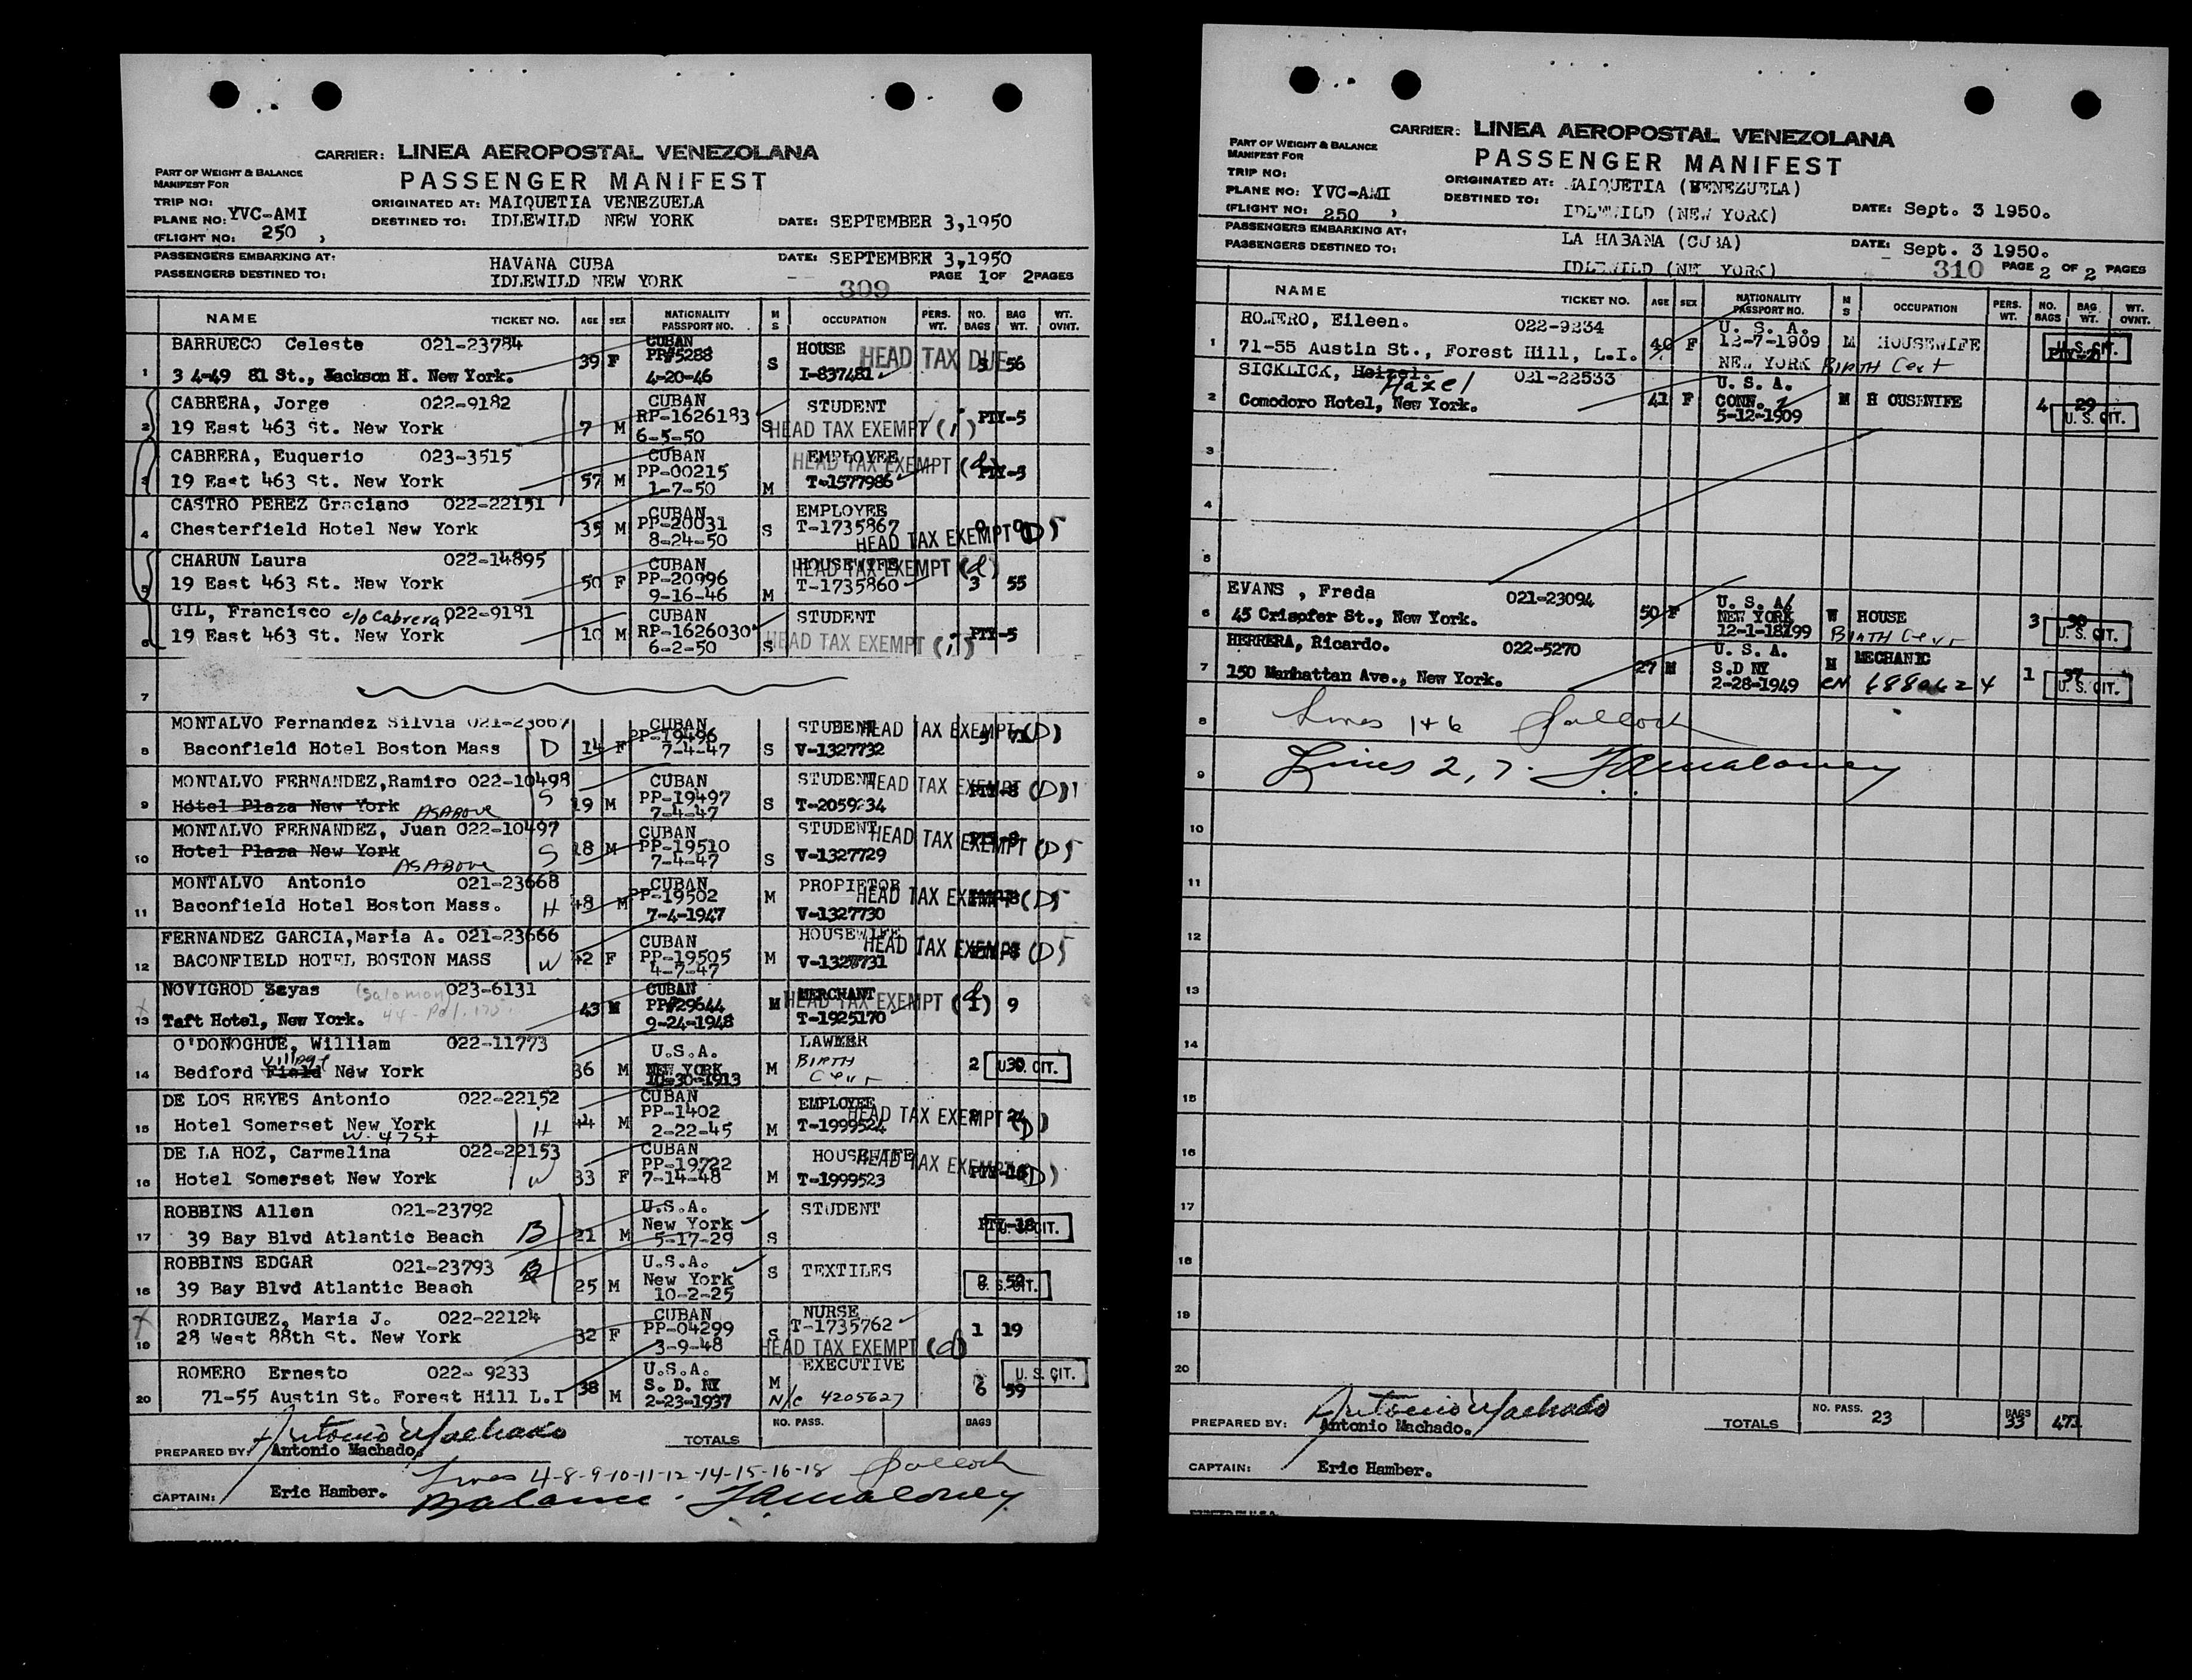 CARRIER: LINEA AEROPOSTAL VENEZOLANA
PASSENGER MANIFEST
PART OF WEIGHT & BALANCE
MANIFEST FOR
TRIP NO:
PLANE NO: YVC-AMI
(FLIGHT NO: 250 )
ORIGINATED AT: MAIQUETIA VENEZUELA
DESTINED TO: IDLEWILD NEW YORK
DATE: SEPTEMBER 3,1950
PASSENGERS EMBARKING AT: HAVANA CUBA
DATE: SEPTEMBER 3,1950
PASSENGERS DESTINED TO: IDLEWILD NEW YORK
309
PAGE 1 OF 2 PAGES
NAME TICKET NO. AGE SEX NATIONALITY PASSPORT NO. M S OCCUPATION PERS. WT. NO. BAGS BAG WT. WT. OVNT.
BARRUECO Celeste 021-23784 CUBAN HOUSE HEAD TAX DUE
1 3 4-49 81 St., Jackson H. New York. 39 F PP#5288 S I-837481 3 56
4-20-46
CABRERA, Jorge 022-9182 CUBAN STUDENT
2 19 East 463 St. New York 7 M RP-1626183 S HEAD TAX EXEMPT (i) PTY-5
6-5-50
CABRERA, Euquerio 023-3515 CUBAN EMPLOYEE HEAD TAX EXEMPT (d)
3 19 East 463 St. New York 57 M PP-00215 M T-1577986 PTY-5
1-7-50
CASTRO PEREZ Graciano 022-22151 CUBAN EMPLOYEE
4 Chesterfield Hotel New York 35 M PP-20031 S T-1735867
8-24-50 HEAD TAX EXEMPT (D)
CHARUN Laura 022-14895 CUBAN HOUSEWIFE HEAD TAX EXEMPT (d)
5 19 East 463 St. New York 50 F PP-20996 M T-1735860 3 55
9-16-46
GIL, Francisco c/o Cabrera 022-9181 CUBAN STUDENT
6 19 East 463 St. New York 10 M RP-1626030 S HEAD TAX EXEMPT (i) PTY-5
6-2-50
7
MONTALVO Fernandez Silvia 021-23667 CUBAN STUDENT HEAD TAX EXEMPT (D)
8 Baconfield Hotel Boston Mass D 14 F PP-19496 S V-1327732
7-4-47
MONTALVO FERNANDEZ,Ramiro 022-10498 CUBAN STUDENT HEAD TAX EXEMPT (D)
9 Hotel Plaza New York AS ABOVE S 19 M PP-19497 S T-2059234 PTY-8
7-4-47
MONTALVO FERNANDEZ, Juan 022-10497 CUBAN STUDENT HEAD TAX EXEMPT (D)
10 Hotel Plaza New York AS ABOVE S 18 M PP-19510 S V-1327729
7-4-47
MONTALVO Antonio 021-23668 CUBAN PROPIETOR HEAD TAX EXEMPT (D)
11 Baconfield Hotel Boston Mass. H 48 M PP-19502 M V-1327730
7-4-1947
FERNANDEZ GARCIA,Maria A. 021-23666 CUBAN HOUSEWIFE HEAD TAX EXEMPT (D)
12 BACONFIELD HOTEL BOSTON MASS W 42 F PP-19505 M V-1327731
4-7-47
NOVIGROD Zayas (Salomon) 023-6131 CUBAN MERCHANT HEAD TAX EXEMPT (d)
13 Taft Hotel, New York. 43 M PP#29644 M T-1925170 1 9
9-24-1948
O'DONOGHUE, William 022-11773 U.S.A. LAWYER
14 Bedford Field Village New York 36 M NEW YORK M BIRTH Cert 2 30 U.S. CIT.
10-30-1913
DE LOS REYES Antonio 022-22152 CUBAN EMPLOYEE HEAD TAX EXEMPT (D)
15 Hotel Somerset New York H 44 M PP-1402 M T-1999524
W. 47 St 2-22-45
DE LA HOZ, Carmelina 022-22153 CUBAN HOUSEWIFE HEAD TAX EXEMPT (D)
16 Hotel Somerset New York W 33 F PP-19722 M T-1999523
7-14-48
ROBBINS Allen 021-23792 U.S.A. STUDENT
17 39 Bay Blvd Atlantic Beach B 21 M New York S PTY-18 U.S. CIT.
5-17-29
ROBBINS EDGAR 021-23793 U.S.A. TEXTILES
18 39 Bay Blvd Atlantic Beach B 25 M New York S U.S. CIT.
10-2-25
RODRIGUEZ, Maria J. 022-22124 CUBAN NURSE
19 28 West 88th St. New York 32 F PP-04299 S T-1735762 1 19
3-9-48 HEAD TAX EXEMPT (d)
ROMERO Ernesto 022-9233 U.S.A. EXECUTIVE U.S. CIT.
20 71-55 Austin St. Forest Hill L.I 38 M S. D. NY M N/c 4205627 6 59
2-23-1937
NO. PASS. BAGS
TOTALS
Antonio Machado
PREPARED BY: Antonio Machado.
Lines 4-8-9-10-11-12-14-15-16-18
CAPTAIN: Eric Hamber.
Balance.
CARRIER: LINEA AEROPOSTAL VENEZOLANA
PASSENGER MANIFEST
PART OF WEIGHT & BALANCE
MANIFEST FOR
TRIP NO:
PLANE NO: YVC-AMI
(FLIGHT NO: 250 )
ORIGINATED AT: MAIQUETIA (VENEZUELA)
DESTINED TO: IDLEWILD (NEW YORK)
DATE: Sept. 3 1950.
PASSENGERS EMBARKING AT: LA HABANA (CUBA)
DATE: Sept. 3 1950.
PASSENGERS DESTINED TO: IDLEWILD (NEW YORK)
310 PAGE 2 OF 2 PAGES
NAME TICKET NO. AGE SEX NATIONALITY PASSPORT NO. M S OCCUPATION PERS. WT. NO. BAGS BAG WT. WT. OVNT.
ROMERO, Eileen. 022-9234 U. S. A.
1 71-55 Austin St., Forest Hill, L.I. 40 F 12-7-1909 M HOUSEWIFE U.S. CIT.
NEW YORK BIRTH Cert
SICKLICK, Hazel 021-22533 U. S. A.
2 Comodoro Hotel, New York. 41 F CONN. M HOUSEWIFE 4 29
5-12-1909 U. S. CIT.
3
4
5
EVANS , Freda 021-23094 U. S. A.
6 45 Crisofer St., New York. 50 F NEW YORK W HOUSE 3 U. S. CIT.
12-1-18199 BIRTH Cert
HERRERA, Ricardo. 022-5270 U. S. A.
7 150 Manhattan Ave., New York. 27 M S.D NY M MECHANIC 1 37 U. S. CIT.
2-28-1949 CN
8 Lines 1+6
9 Lines 2, 7.
10
11
12
13
14
15
16
17
18
19
20
NO. PASS. 23 BAGS 33 471
TOTALS
Antonio Machado
PREPARED BY: Antonio Machado.
CAPTAIN: Eric Hamber.
PRINTED IN U.S.A.